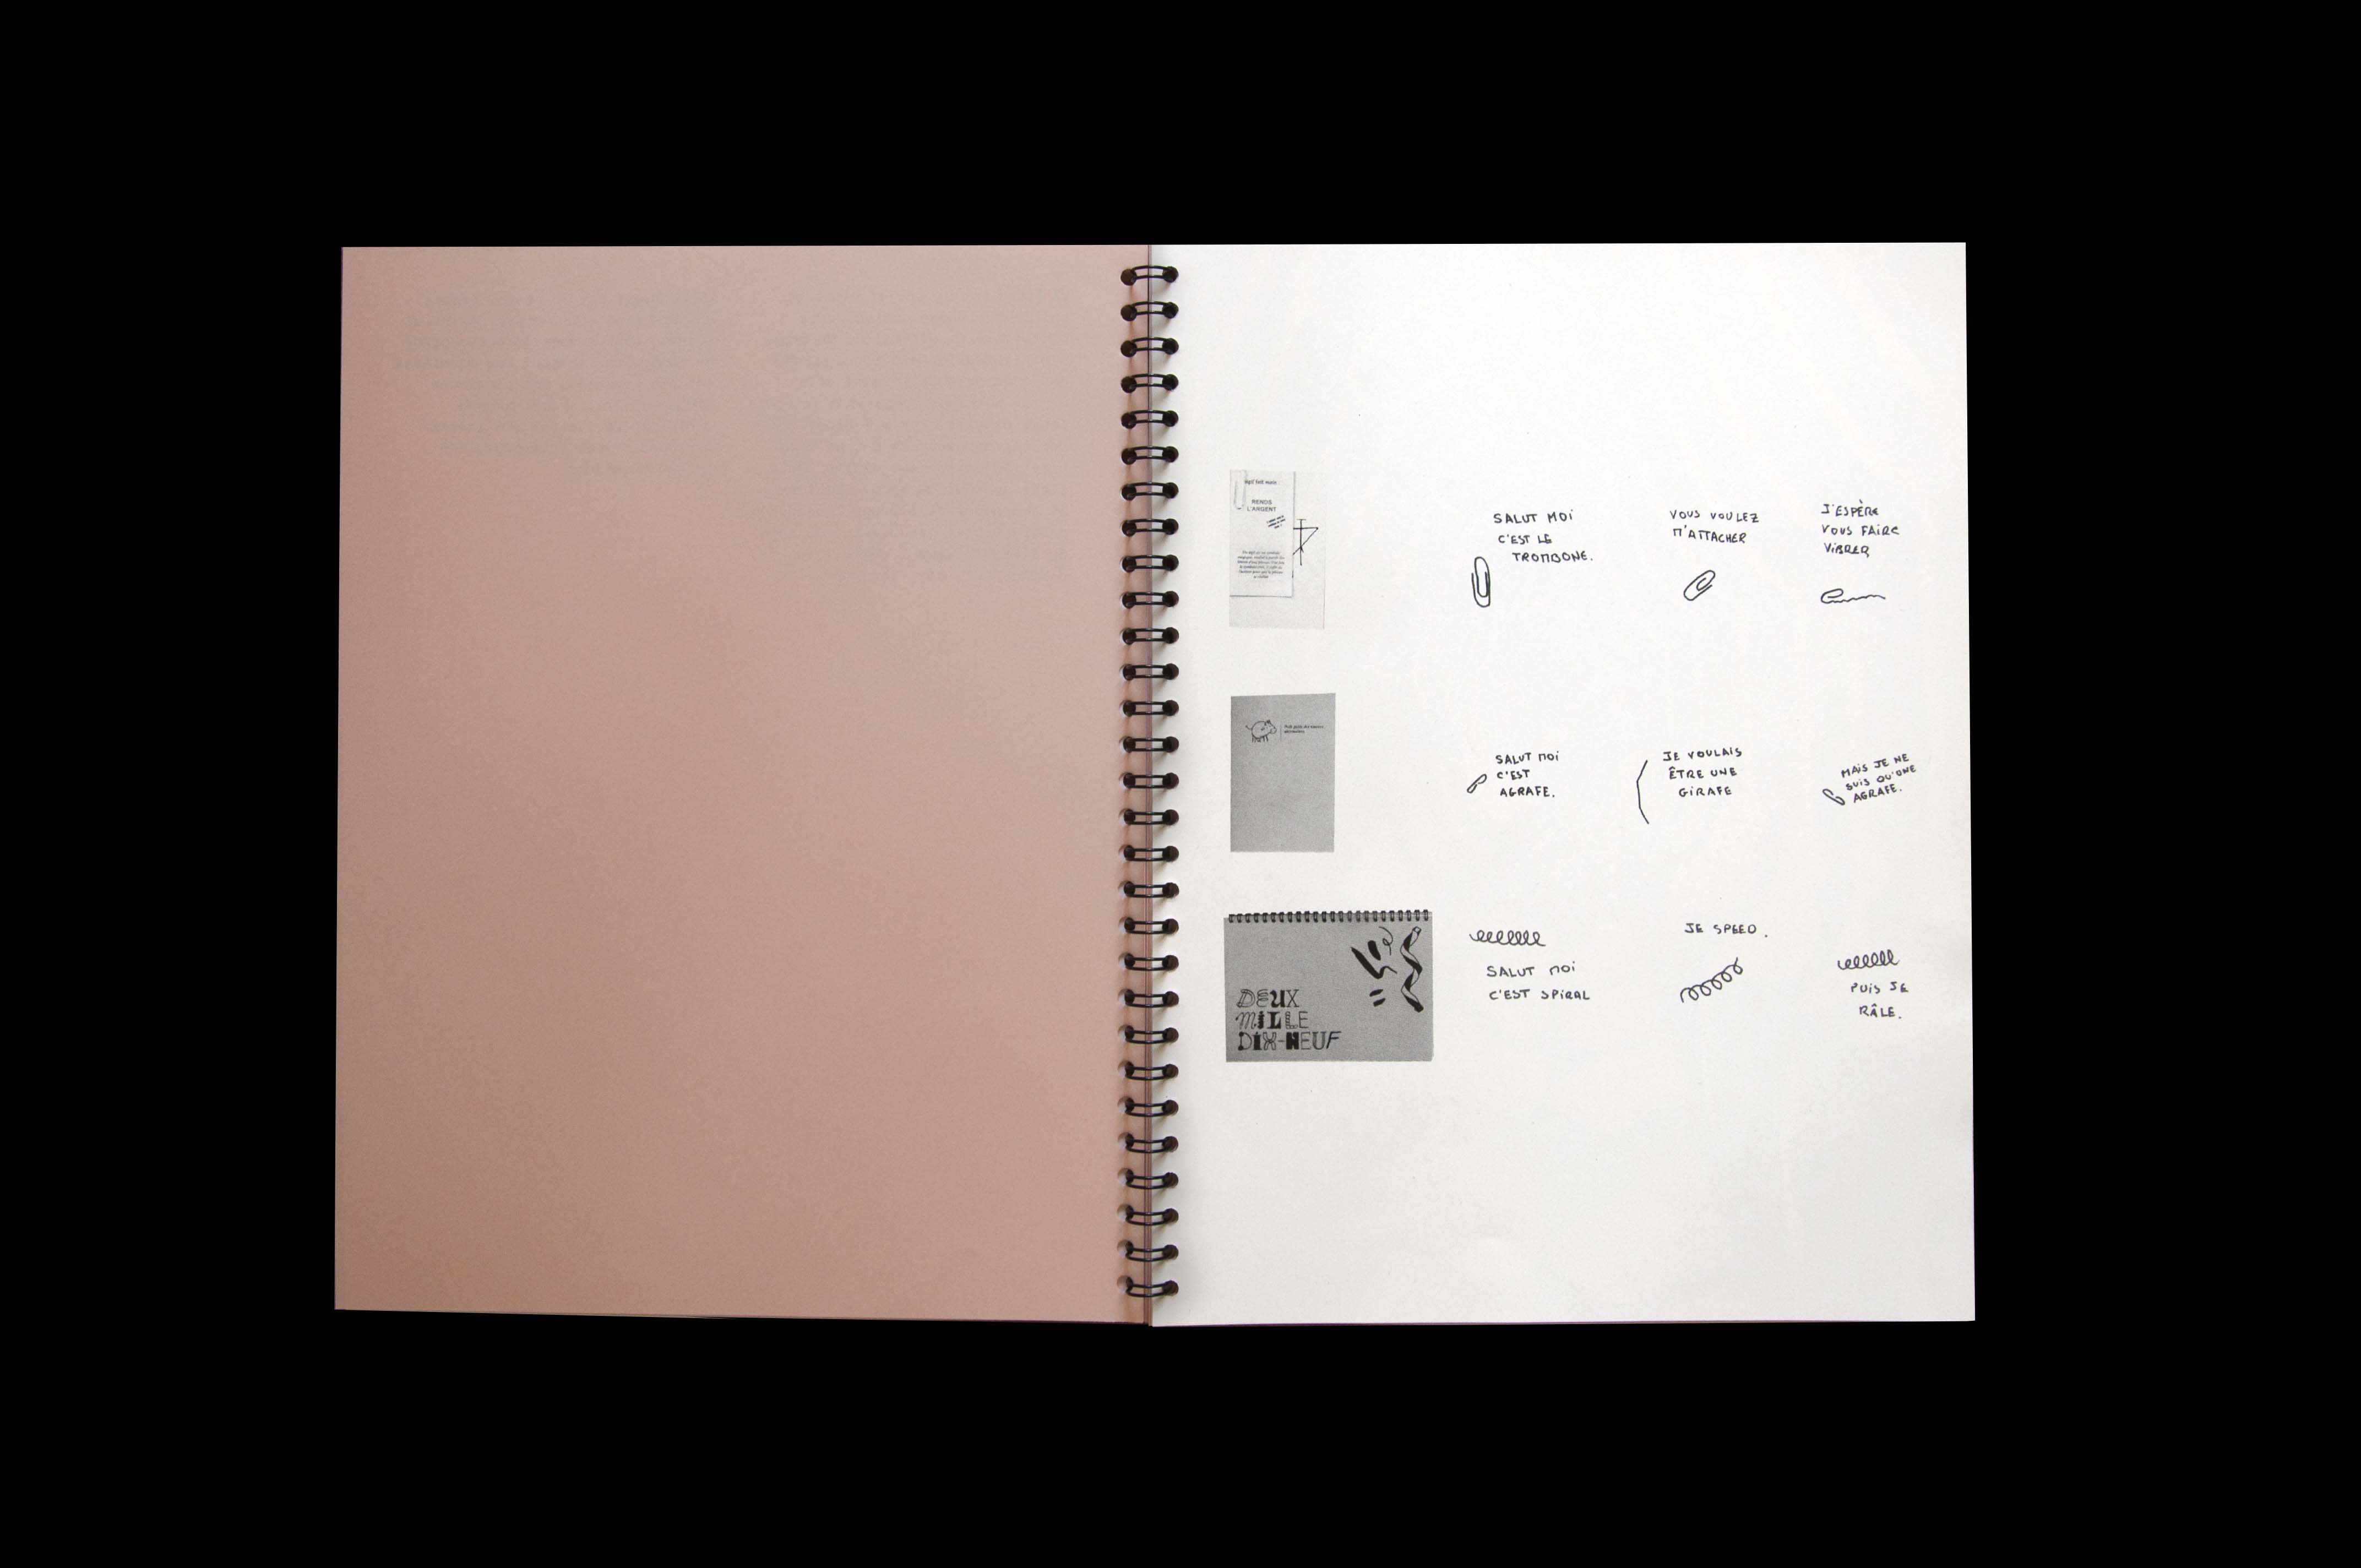 RENDS
L'ARGENT
SALUT MOI
C'EST LE
TROMBONE.
VOUS VOULEZ
M'ATTACHER
J'ESPÈRE
VOUS FAIRE
VIBRER
SALUT MOI
C'EST
AGRAFE.
JE VOULAIS
ÊTRE UNE
GIRAFE
MAIS JE NE
SUIS QU'UNE
AGRAFE.
DEUX
MILLE
DIX-NEUF
SALUT MOI
C'EST SPIRAL
JE SPEED.
PUIS JE
RÂLE.